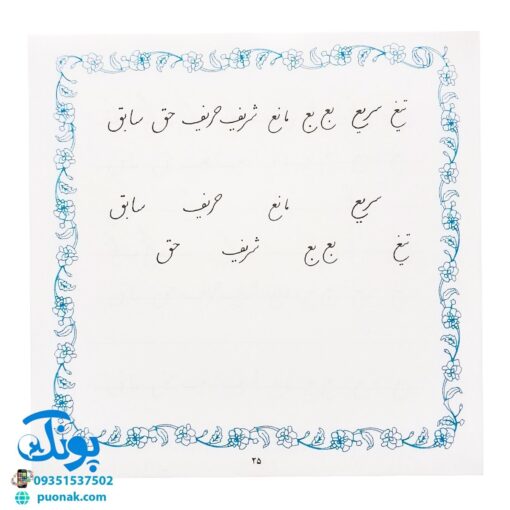 تیغ سریع بع بع مانع شریف حریف حق سابق
سریع مانع حریف سابق
تیغ بع بع شریف حق
۲۵
پونک
09351537502
puonak.com